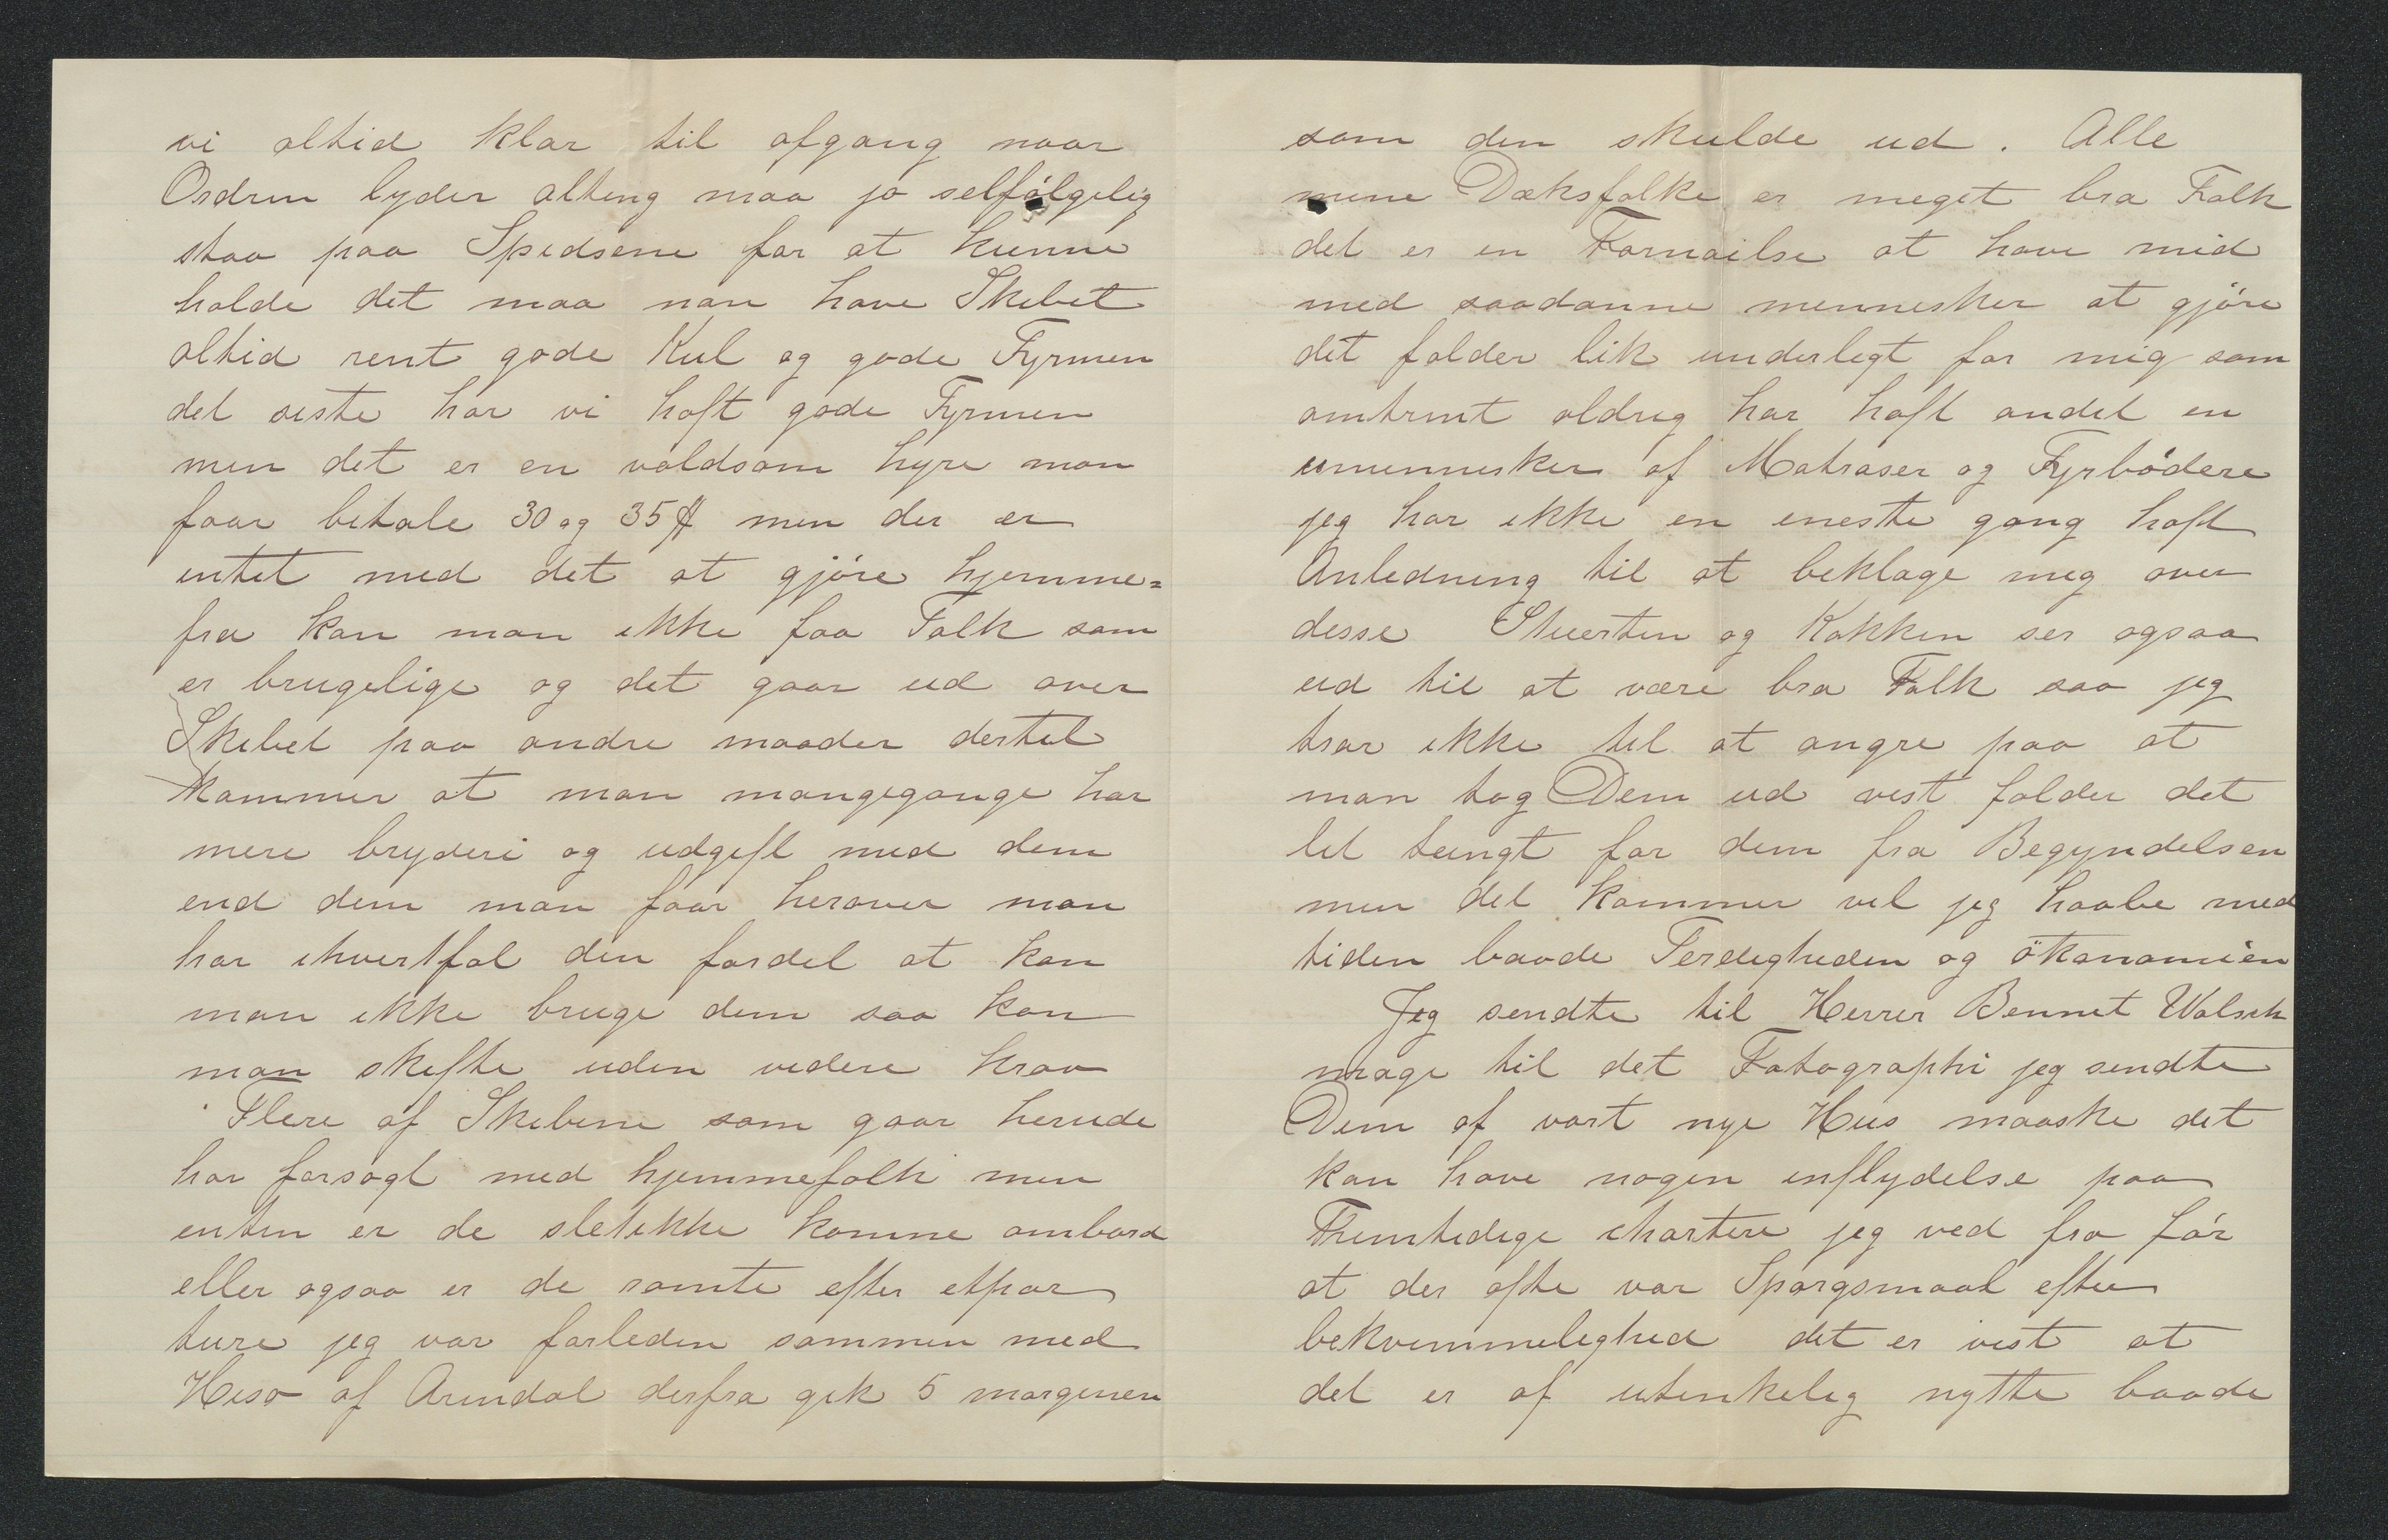 vi altid klar til afgang naar
Ordren lyder alting maa jo selfölgelig
staa paa Spidsene for at kunne
holde det maa man have Skibet
altid rent gode Kul og gode Fyrmen
det siste har vi haft gode Fyrmen
men det er en voldsom hyre man
faar betale 30 og 35 $ men der er
intet med det at gjöre hjemme=
fra kan man ikke faa Folk som
er brugelige og det gaar ud over
Skibet paa andre maader dertil
kommer at man mangegange har
mere bryderi og udgift med dem
end dem man faar herover man
har ihvertfal den fordel at kan
man ikke bruge dem saa kan
man skifte uden videre krav
Flere af Skibene som gaar herude
har forsögt med hjemmefolk men
enten er de sletikke komne ombord
eller ogsaa er de römte efter etpar
ture jeg var forleden sammen med
Hisö af Arendal derfra gik 5 morgenen
som den skulde ud. Alle
mine Dæksfolke er meget bra Folk
det er en Fornöilse at have mid
med saadanne mennesker at gjöre
det falder lik underligt for mig som
omtrent aldrig har haft andet en
umennesker af Matroser og Fyrbödere
jeg har ikke en eneste gang haft
Anledning til at beklage mig over
desse Stuerten og Kokken ser ogsaa
ud til at være bra Folk saa jeg
tror ikke til at angre paa at
man tog Dem ud vist falder det
lit tungt for dem fra Begyndelsen
men det kommer vil jeg haabe med
tiden baade Ferdigheden og ökonomien
Jeg sendte til Herrer Bennet Walsch
mage til det Fotographi jeg sendte
Dem af vort nye Hus maaske det
kan have nogen inflydelse paa
Fremtidige chartere jeg ved fra för
at der ofte var Spörgsmaal efter
bekvemmelighed det er vist at
det er af utenkelig nytte baade